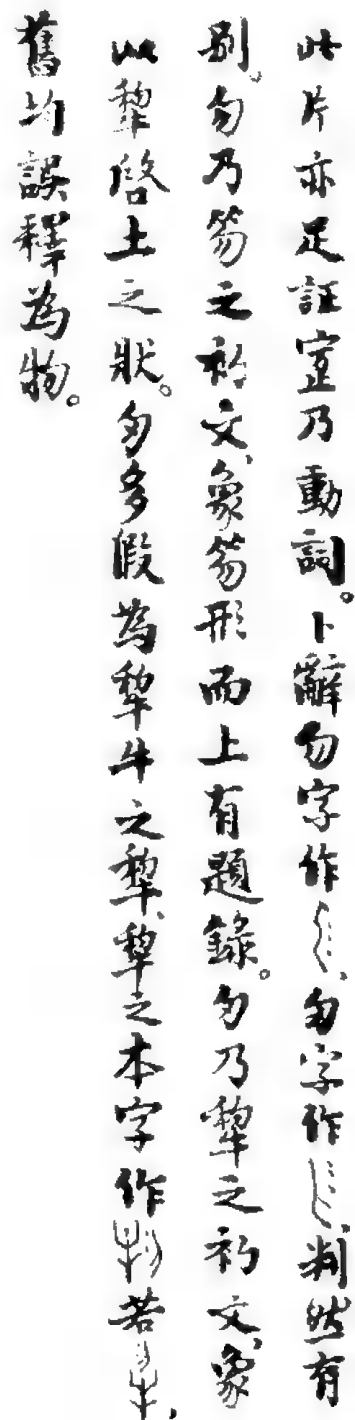 此片亦足証𡧛乃動詞。卜辭勿字作、勿字作、判然有
別。勿乃笏之初文、象笏形而上有題錄。勿乃犂之初文、象
以犂啓土之狀。勿多假為犂牛之犂、犂之本字作若，
舊均誤釋為物。